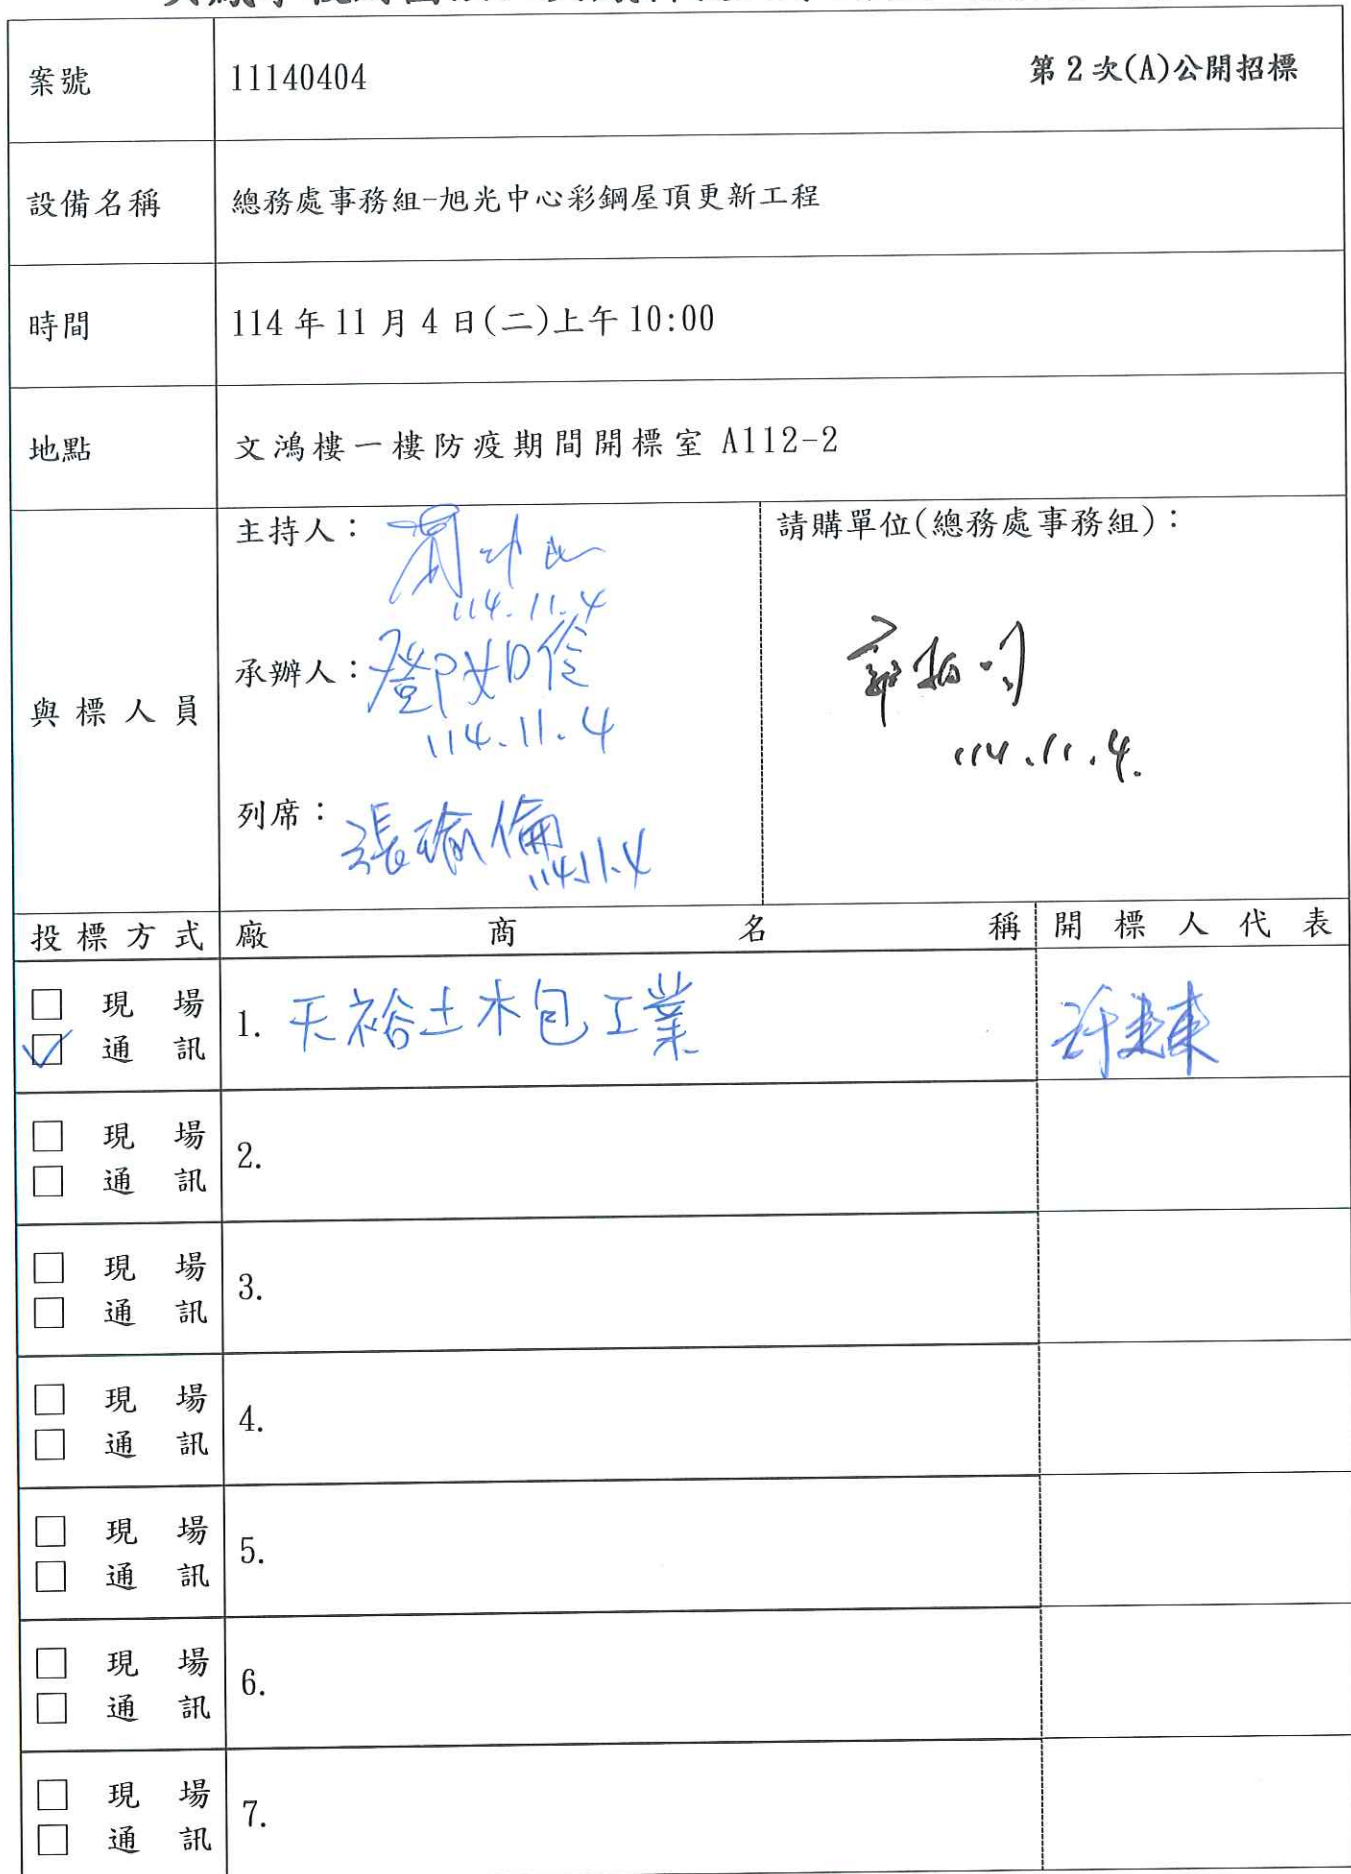 案號 11140404 第2次(A)公開招標
設備名稱 總務處事務組-旭光中心彩鋼屋頂更新工程
時間 114年11月4日(二)上午10:00
地點 文鴻樓一樓防疫期間開標室 A112-2
與標人員
主持人：
114.11.4
承辦人：鄧如伶
114.11.4
列席：張瑜倫
114.11.4
請購單位(總務處事務組)：
114.11.4.
投標方式 廠商名稱 開標人代表
□ 現場
☑ 通訊
1. 天裕土木包工業
□ 現場
□ 通訊
2.
□ 現場
□ 通訊
3.
□ 現場
□ 通訊
4.
□ 現場
□ 通訊
5.
□ 現場
□ 通訊
6.
□ 現場
□ 通訊
7.